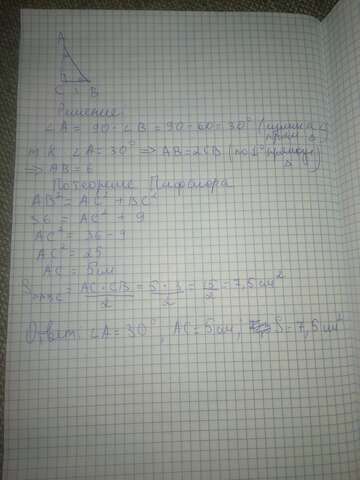 A
C 3 B
Решение
∠A = 90 - ∠B = 90 - 60 = 30°
т.к. ∠A = 30° => AB = 2CB
=> AB = 6
По теореме Пифагора
AB² = AC² + BC²
36 = AC² + 9
AC² = 36 - 9
AC² = 25
AC = 5см
S△ABC = AC · CB / 2 = 5 · 3 / 2 = 15 / 2 = 7,5 см²
Ответ: ∠A = 30°, AC = 5 см; S = 7,5 см²